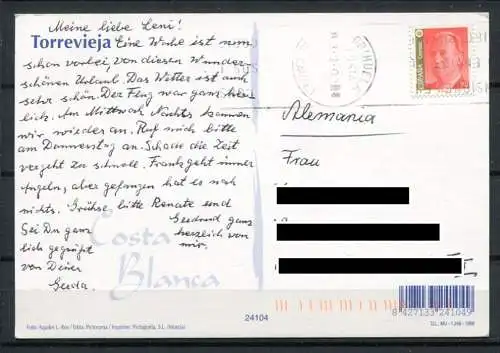 Meine liebe Leni!
Torrevieja Eine Woche ist nun
schon vorbei, von diesen Wunder-
schönen Urlaub. Das Wetter ist auch
sehr schön. Der Flug war ganz herr-
lich. Am Mittwoch Nachts kommen
wir wieder an. Ruf mich bitte
am Donnerstag an. Schade die Zeit
vergeht zu schnell. Frank geht immer
Angeln, aber gefangen hat es noch
nichts. Grühse bitte Renate und
Gerdrud ganz
Sei Du ganz herzlich von
lich gegrüßt mir.
von Deiner
Gerda.
Costa
Blanca
Alemania
Frau
ORIHUELA
ESPAÑA
24104
8 427133 241049